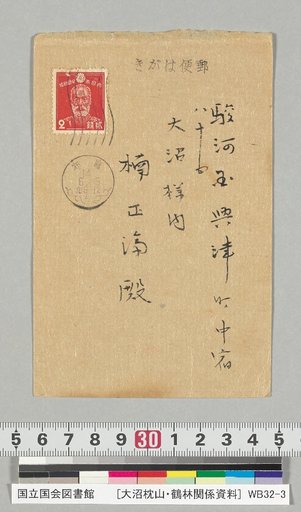 きがは便郵
駿河国興津町中宿
八十四
大沼様内
楠正済殿
2
5 6 7 8 9 30 1 2 3 4 5
国立国会図書館 [大沼枕山・鶴林関係資料] WB32-3